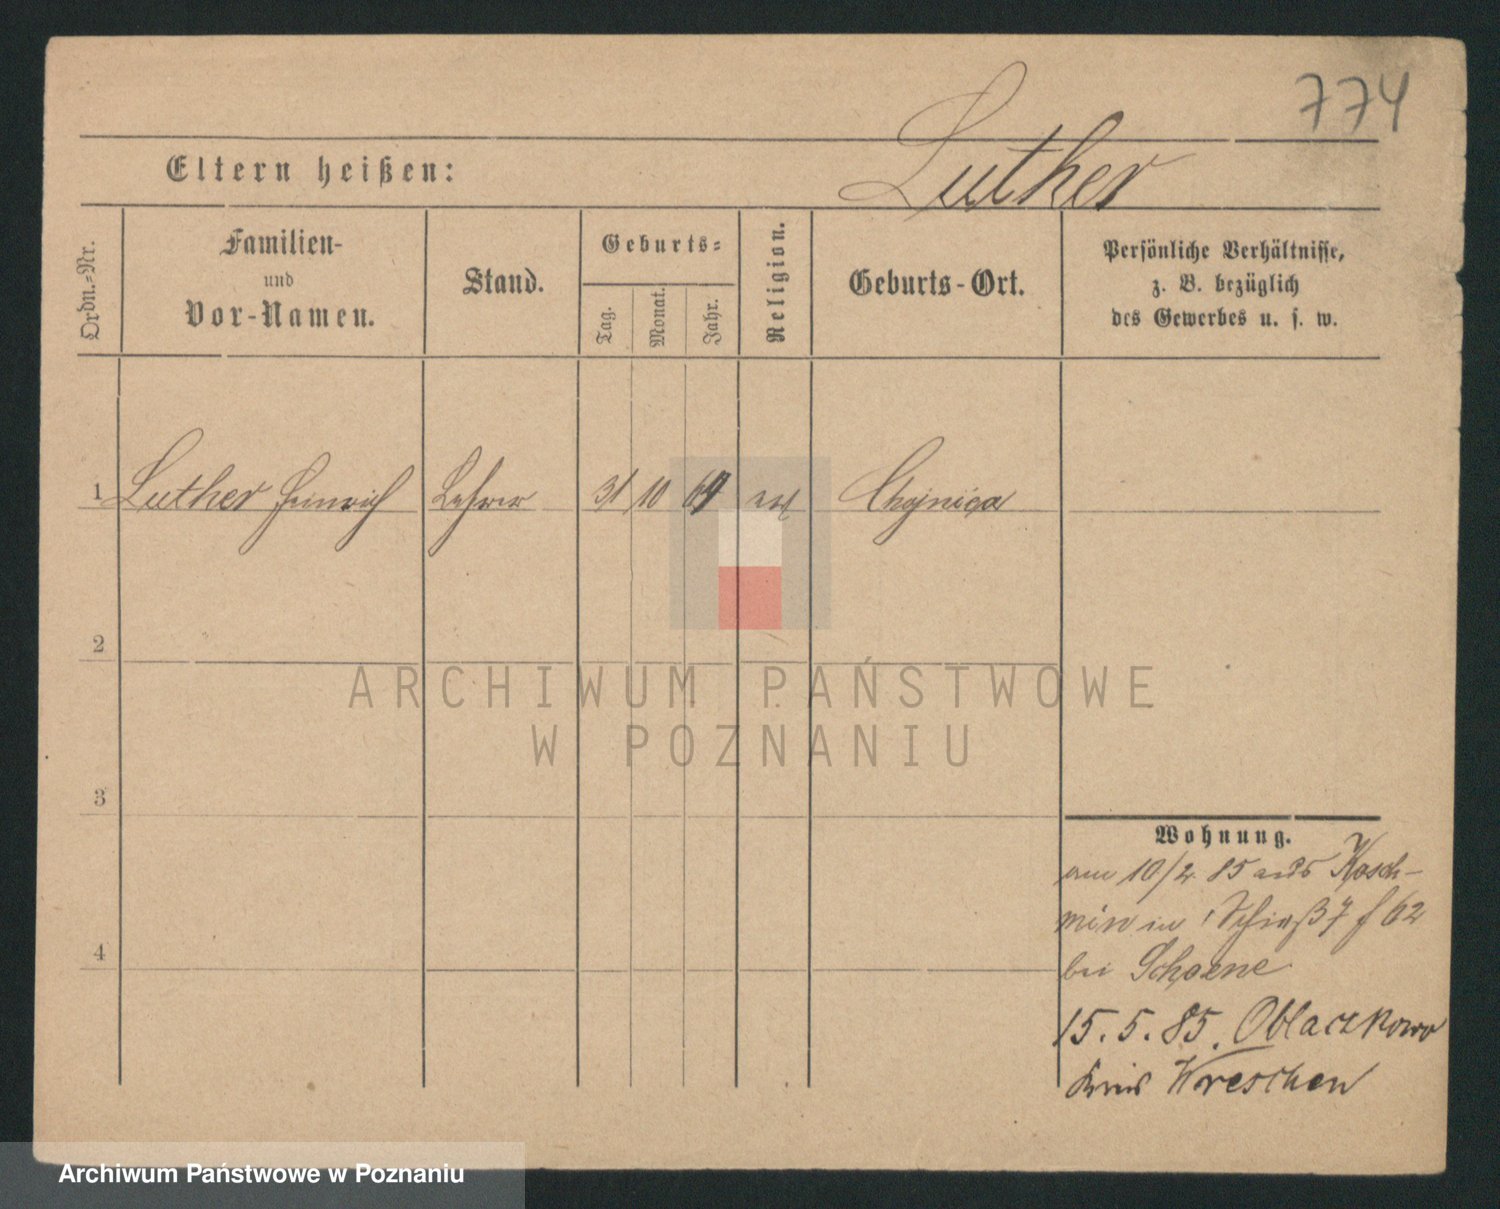 774
Luther
Eltern heißen:
Ordn.-Nr.
Familien-
und
Vor-Namen.
Stand.
Geburts-
Tag.
Monat.
Jahr.
Religion.
Geburts-Ort.
Persönliche Verhältnisse,
z. B. bezüglich
des Gewerbes u. s. w.
1 Luther Heinrich Lehrer 31 10 64 ev Chojnica
2
3
4
ARCHIWUM PAŃSTWOWE
W POZNANIU
Wohnung.
am 10/2 85 aus Kosch-
min in 62
bei Schoene
15.5.85. Oblaczkowo
Kreis Wreschen
Archiwum Państwowe w Poznaniu